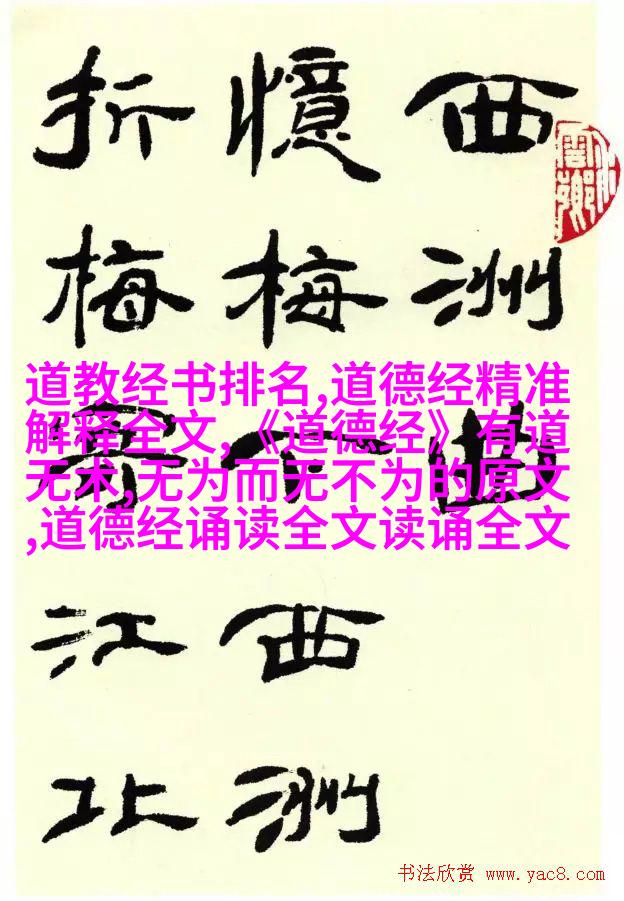 西洲曲
憶梅下西洲
折梅寄江北
道教经书排名,道德经精准
解释全文,《道德经》有道
无术,无为而无不为的原文
,道德经诵读全文读诵全文
书法欣赏 www.yac8.com